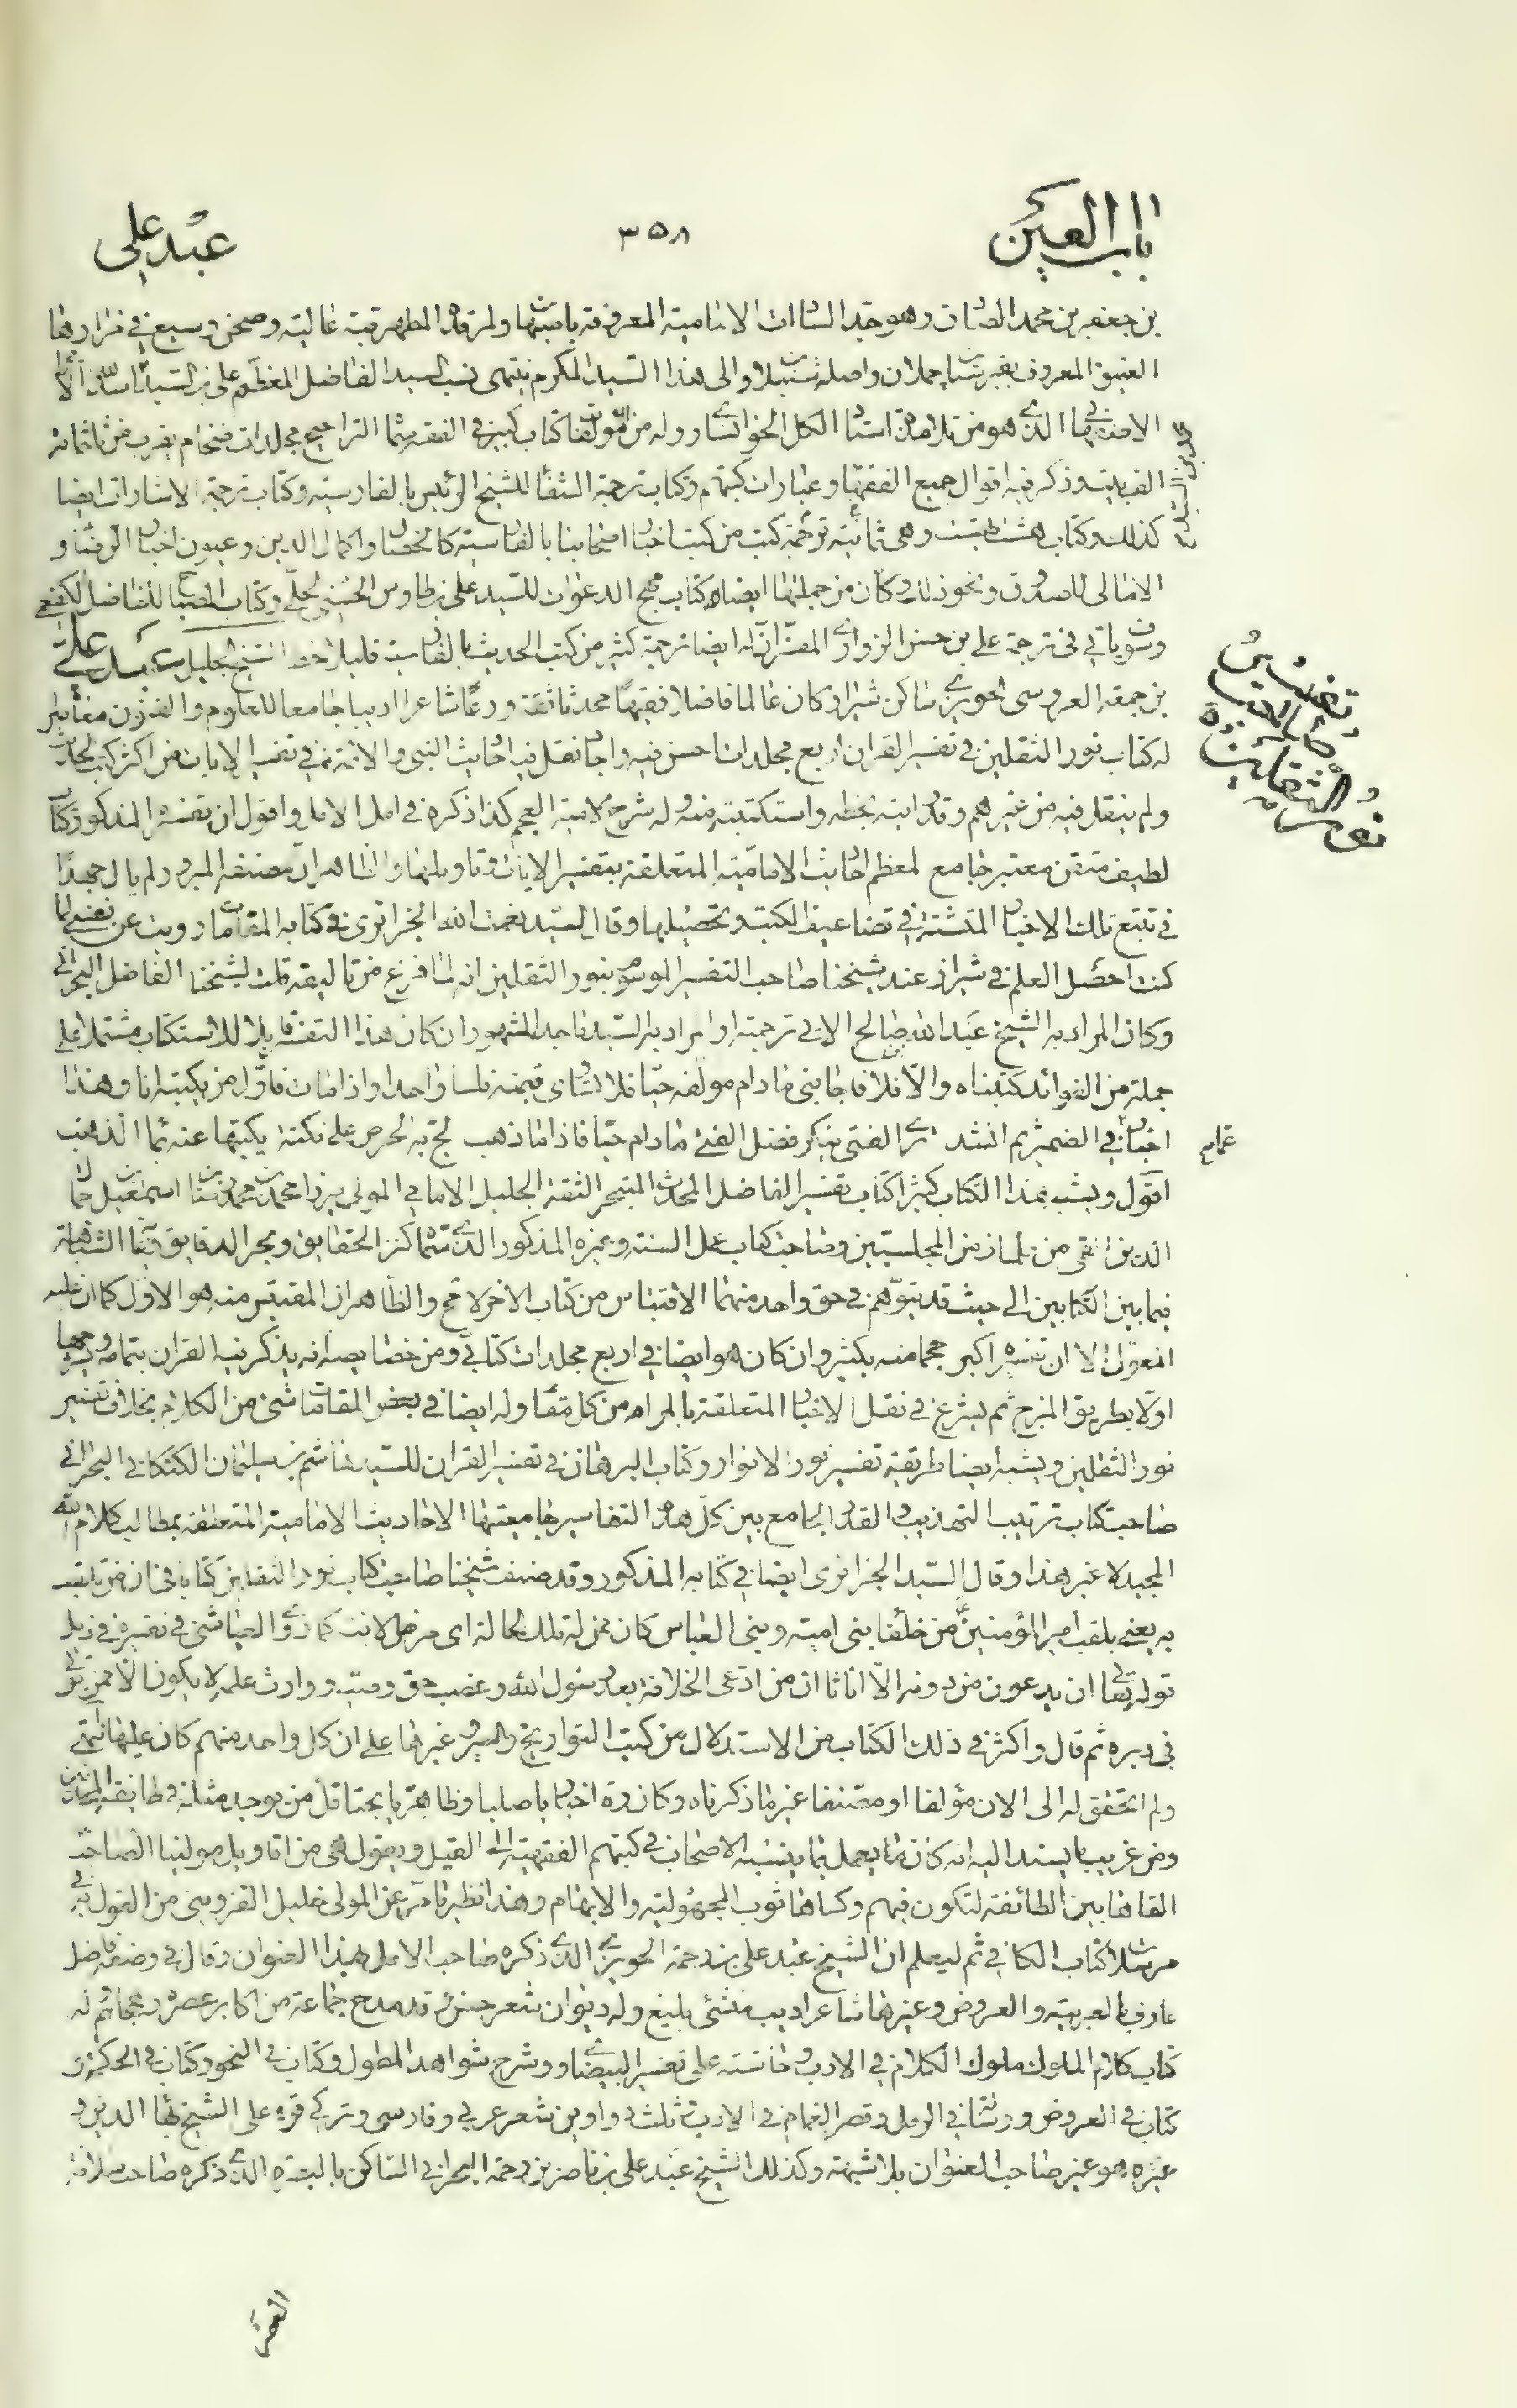 باب العين
٣٥٨
عبد علي
بن جعفر بن محمد الصادق وهو جد السادات الامامية المعروفة باصبها ولمرقده المطهر قبة عالية وصحن وسيع في مزارها
العتيق المعروف بقبرستان جملان واصله سنبلان والى هذا السيد المكرم ينتمي نسب السيد الفاضل المعظم على بن السيد
الاصفهاني الذي هو من تلامذة استاد الكل الخوانساري وله من المؤلفات كتاب كبير في الفقه سماه التراجيح مجلدات ضخام يقرب من ثلثمائة
الف بيت وذكر فيه اقوال جميع الفقهاء وعبارات كتبهم وكتاب ترجمة الشفا للشيخ الرئيس بالفارسية وكتاب ترجمة الاشارات ايضا
كذلك وكتاب هشت بهشت وهي ثمانية ترجمة كتب من كتب اخبار اصحابنا بالفارسية كالخصال واكمال الدين وعيون اخبار الرضا و
الامالى للصدوق ونحو ذلك وكان من جملتها ايضا كتاب مهج الدعوات للسيد على بن طاوس الحسني الحلي وكتاب المصباح للفاضل الكفعمي
وسوف ياتي في ترجمة على بن حسن الزواري المفسر ان له ايضا ترجمة كثير من كتب الحديث بالفارسية فليلاحظ الشيخ الجليل عبد علي
بن جمعة العروسى الحويزي ساكن شيراز كان عالما فاضلا فقيها محدثا ثقة ورعا شاعرا اديبا جامعا للعلوم والفنون معاصرا
له كتاب نور الثقلين في تفسير القران اربع مجلدات احسن فيه واجاد نقل فيه احاديث النبي والائمة في تفسير الايات من اكثر كتب الحديث
ولم ينقل فيه من غيرهم وقد رايته بخطه واستكتبته منه وله شرح لامية العجم كذا ذكره في امل الامل واقول ان تفسيره المذكور كتاب
لطيف متقن معتبر جامع لمعظم احاديث الامامية المتعلقة بتفسير الايات وتاويلها والظاهر ان مصنفه المبرور لم يال جهدا
في تتبع تلك الاخبار المتشتتة في تضاعيف الكتب وتحصيلها وقال السيد نعمت الله الجزائرى في كتابه المقامات رويت عن نفسي لما
كنت احصل العلم في شيراز عند شيخنا صاحب التفسير الموسوم بنور الثقلين انه لما فرغ من تاليفه قلت لشيخنا الفاضل البحراني
وكان المراد به الشيخ عبد الله صالح الاتى ترجمته او المراد به السيد ماجد المشهور ان كان هذا التفسير قابلا للاستكتاب مشتملا على
جملة من الفوائد كتبناه والا فلا فاجابني مادام مؤلفه حيا فلا تساوى قيمته فلسا واحدا واذا مات فاول من يكتبه انا وهذا
اخبار في الضمير ثم انشد ترى الفتى ينكر فضل الفتى مادام حيا فاذا ما ذهب لج به الحرص على نكتة يكتبها عنه بماء الذهب
اقول ويشبه هذا الكتاب كثيرا كتاب تفسير الفاضل المحدث المتبحر الثقة الجليل الامامي المولى ميرزا محمد بن محمد رضا بن اسمعيل جمال
الدين القمي من تلامذة المجلسيين وصاحب كتاب عمل السنة وغيره المذكور الذي سماه كنز الحقايق وبحر الدقايق فيما الشباهة
فيما بين الكتابين الى حيث قد يتوهم في حق واحد منهما الاقتباس من كتاب الاخر لا مح والظاهر ان المقتبس منه هو الاول كما ان عليه
المعول الا ان تفسيره اكبر حجما منه بكثير وان كان هو ايضا في اربع مجلدات كتابي ومن خصايصه انه يذكر فيه القران بتمامه
اولا بطريق المزج ثم يشرع في نقل الاخبار المتعلقة بالمرام من كل مقام وله ايضا في بعض المقامات شئ من الكلام بخلاف تفسير
نور الثقلين ويشبه ايضا طريقة تفسير نور الانوار وكتاب البرهان في تفسير القران للسيد هاشم بن سليمان الكتكاني البحراني
صاحب كتاب ترتيب التهذيب والقدر الجامع بين كل هذه التفاسير جامعيتها الاحاديث الامامية المتعلقة بمطالب كلام الله
المجيد لا غير هذا وقال السيد الجزائرى ايضا في كتابه المذكور وقد صنف شيخنا صاحب كتاب نور الثقلين كتابا في ان من تلقب
به يعني بلقب امير المؤمنين من خلفاء بنى امية وبنى العباس كان بمنزلة تلك الحالة اى مرض الابنة كما ذكره العياشى في تفسيره في ذيل
قوله تعالى ان يدعون من دونه الا اناثا ان من ادعى الخلافة بعد رسول الله وغصب حق وصيه ووارث علمه لا يكون الا ممن يؤتى
في دبره ثم قال واكثر في ذلك الكتاب من الاستدلال من كتب التواريخ والسير وغيرها على ان كل واحد منهم كان عليها انتهى
ولم اتحقق له الى الان مؤلفا او مصنفا غير ما ذكرناه وكان ره اخباريا صلبا وظاهريا بحتا قل من يوجد مثله في طائفة المحدثين
ومن غريب ما يسند اليه انه كان مما يعمل بما ينسبه الاصحاب في كتبهم الفقهية الى القيل ويقول هي من اقاويل مولينا الصاحب
القاها بين الطائفة لتكون فيهم وكساها ثوب المجهولية والابهام وهذا نظير ما مر عن المولى خليل القزويني من القول في
مرسلات كتاب الكافي ثم ليعلم ان الشيخ عبد على بن رحمة الحويزي الذي ذكره صاحب الامل بهذا العنوان وقال في وصفه فاضل
عارف بالعربية والعروض وغيرها شاعر اديب منشئ بليغ وله ديوان شعر حسن قد مدح جماعة من اكابر عصره ثم له
كتاب كلام الملوك ملوك الكلام في الادب وحاشية على تفسير البيضاوى وشرح شواهد المطول وكتاب في النحو وكتاب في الحكمة و
كتاب في العروض ورسالة في الرمل وقصر الغمام في الادب وثلث دواوين شعر عربي وفارسى وتركي قرء على الشيخ بهاء الدين و
غيره هو غير صاحب العنوان بلا شبهة وكذلك الشيخ عبد على بن ناصر بن رحمة البحراني الساكن بالبصرة الذي ذكره صاحب سلافة